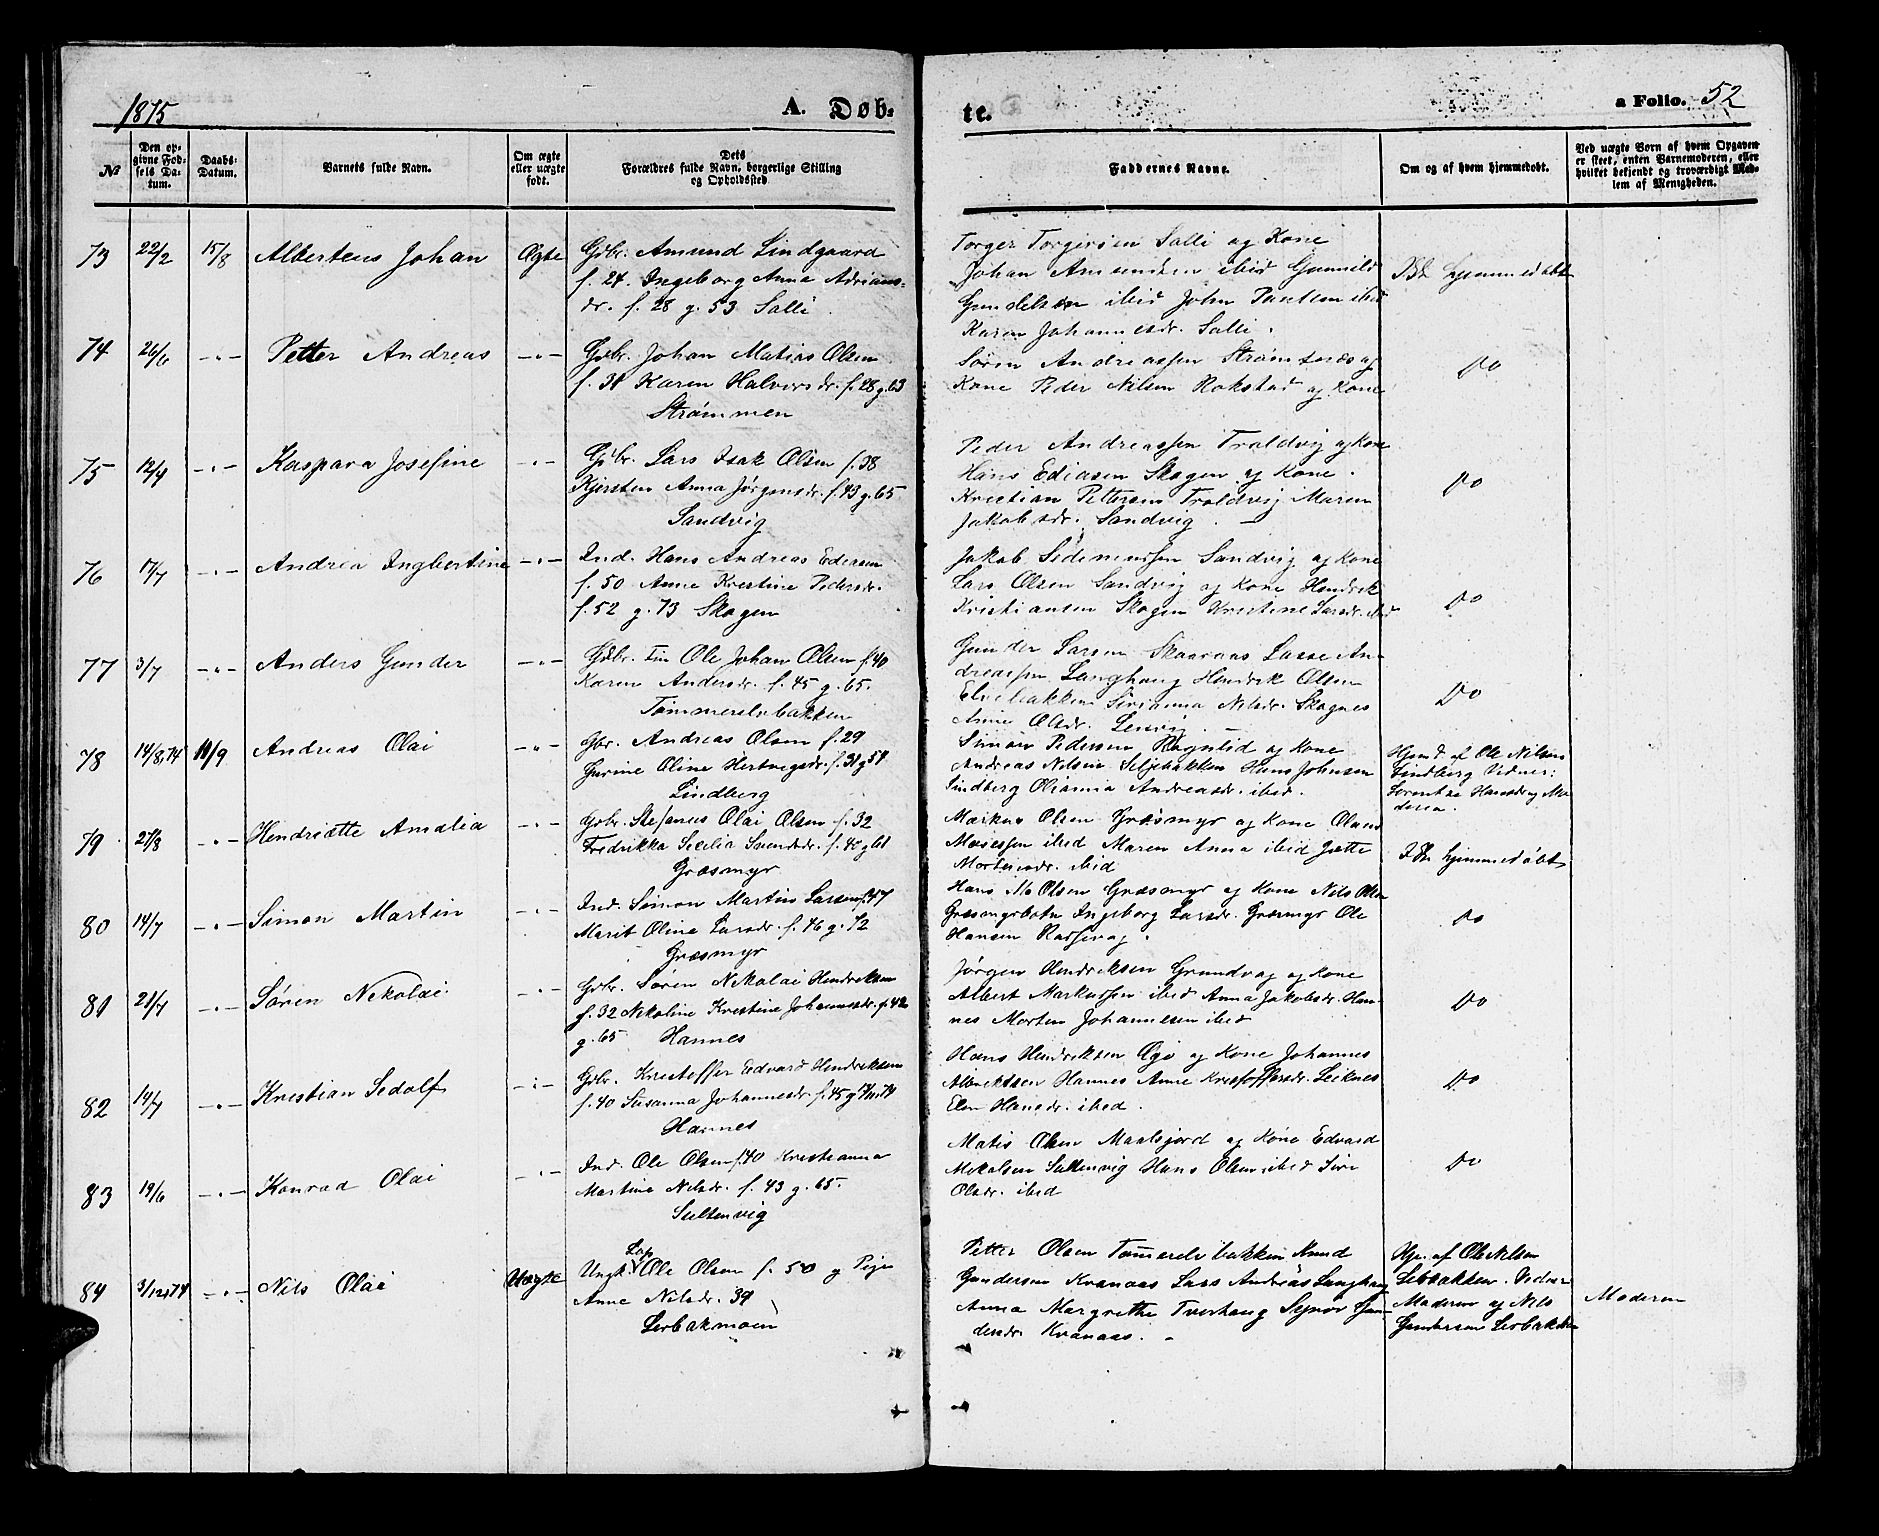 1875
A. Døb-
te.
a Folio. 52
№
Den op-
givne Fød-
sels Da-
tum.
Daabs-
Datum.
Barnets fulde Navn.
Om ægte
eller uægte
født.
Dets
Forældres fulde Navn, borgerlige Stilling
og Opholdssted.
Faddernes Navne.
Om og af hvem hjemmedøbt.
Ved uægte Børn af hvem Opgaven
er skeet, enten Barnemoderen, eller
hvilket bekjendt og troværdigt Med-
lem af Menigheden.
73 22/2 15/8 Alberteus Johan Ægte
Gdbr. Amund Lindgaard
f. 24. Ingeborg Anna Adrians-
dr. f. 28 g. 53 Salli
Torger Torgersen Salli og Kone
Johan Amundsen ibid Gunnild
Gundelsen ibid John Paulsen ibid
Karen Johannesdr. Salli.
hjemmedøbt
74 26/6 -"- Petter Andreas -"-
Gdbr. Johan Matias Olsen
f. 31 Karen Halvorsdr. f. 28 g. 63
Strømmen
Søren Andreassen Strømsnæs og
Kone Peder Nilsen Rokstad og Kone
Do
75 12/4 -"- Kaspara Josefine -"-
Gdbr. Lars Isak Olsen f. 38
Kjersten Anna Jørgensdr. f. 43 g. 65
Sandvig
Peder Andreassen Troldvig og Kone
Hans Ediasen Skogen og Kone.
Kristian Pettersen Troldvig Maren
Jakobsdr. Sandvig.
Do
76 17/7 -"- Andrea Ingbertine -"-
Ind. Hans Andreas Edersen
f. 50 Anne Krestine Pedersdr.
f. 52 g. 73 Skogen
Jakob Sedeniussen Sandvig og Kone
Lars Olsen Sandvig og Kone Hendrik
Kristiansen Skogen Kristine Larsdr. ibid
Do
77 3/7 -"- Anders Gunder -"-
Gdbr. Fin Ole Johan Olsen f. 40
Karen Andersdr. f. 45 g. 65.
Tømmerelvbakken
Gunder Larsen Skaaraas Lasse An-
dreassen Langhaug Hendrik Olsen
Elvebakken Sirianna Nilsdr. Skognes
Anne Olsdr. Lenvig.
Do
78 14/8,74 19/9 Andreas Olai -"-
Gbr. Andreas Olsen f. 29
Gurine Oline Hertvegsdr. f. 31 g 54
Lindberg
Simon Pedersen Rognlid og Kone
Andreas Nilsen Seljebakken Hans Johnsen
Lindberg Olianna Andreasdr. ibid.
Hjmd. af Ole Nilsen
Lindberg Vidner:
Lorentse Hansdr og Mo-
deren
79 27/3 -"- Hendriette Amalia -"-
Gdbr. Stefanus Olai Olsen f. 32
Fredrikka Secilia Svendsdr. f. 40 g 61
Græsmyr
Markus Olsen Græsmyr og Kone Olaus
Mosessen ibid Maren Anna ibid Jette
Mortensdr. ibid
hjemmedøbt
80 14/7 -"- Simon Martin -"-
Ind. Simon Martin Larsen f. 47
Marit Oline Larsdr. f. 46 g. 72
Græsmyr
Hans M Olsen Græsmyr og Kone Nils Olsen
Græsmyrbotn Ingeborg Larsdr. Græsmyr Ole
Hansen
Do
81 21/7 -"- Søren Nekolai -"-
Gdbr. Søren Nekolai Hendriksen
f. 32 Nekoline Krestine Johannesdr. f. 42
g. 65 Hannes
Jørgen Hendriksen Grundvag og Kone
Albert Markussen ibid Anna Jakobsdr. Han-
nes Morten Johannesen ibid
Do
82 14/7 -"- Krestian Sedolf -"-
Gdbr. Kristoffer Edvard Hendriksen
f. 40 Susanna Johannesdr. f. 45 g 17/11,74
Hannes
Hans Hendriksen Øyo og Kone Johannes
Albriktsen Hannes Anne Kristoffersdr. Leiknes
Elen Hansdr. ibid.
Do
83 19/6 -"- Konrad Olai -"-
Ind. Ole Olsen f. 40 Kristianna
Martine Nilsdr. f. 43 g. 65.
Sultenvig
Matis Olsen Maalsjord og Kone Edvard
Mekalsen Sultenvig Hans Olsen ibid Siri
Olsdr. ibid
Do
84 3/12,74 -"- Nils Olai Uægte
Lap
Ungk. Ole Olsen f. 50 og Pige
Anne Nilsdr. 39
Lerbakmoen
Petter Olsen Tømerelvbakken Knud
Gundersen Kvanaas Lars Andreas Langhaug
Anna Margrethe Tverhaug Sejnov Gun-
dersdr Kvanaas.
Hjr. af Ole Nilsen
Lebakken. Vidner
Moderen og Nils
Gundersen Lerbakken
Moderen